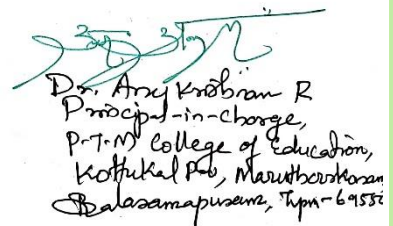 Dr. Anykrishnan R
Principal-in-charge,
P.T.M College of Education,
Kottukal P.O, Maruthoorkonam
Balaramapuram, Tvpm-6955